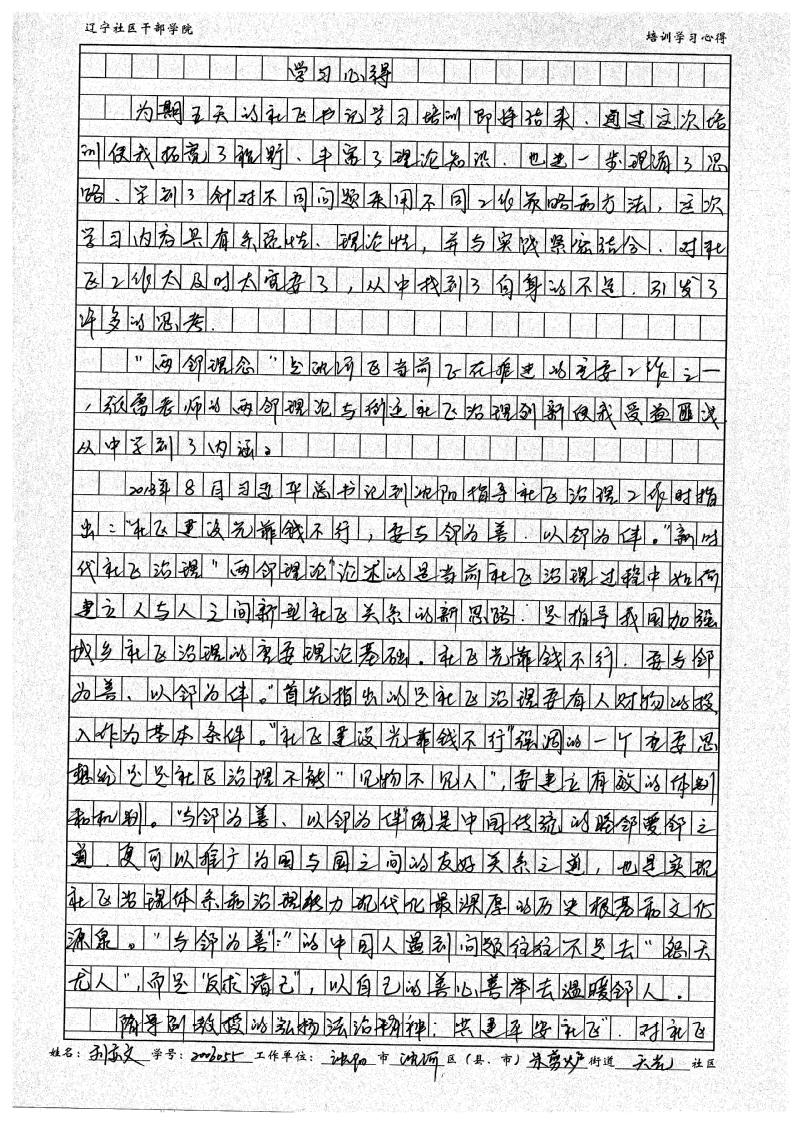 辽宁社区干部学院
培训学习心得
学习心得
为期五天的社区书记学习培训即将结束，通过这次培
训使我拓宽了视野、丰富了理论知识，也进一步理清了思
路、学到了针对不同问题采用不同工作策略和方法，这次
学习内容具有系统性、理论性，并与实践紧密结合，对社
区工作太及时太重要了，从中找到了自身的不足，引发了
许多的思考.
"两邻理念"是沈河区当前正在推进的主要工作之一
，张雷老师的两邻理论与街道社区治理创新使我受益匪浅
从中学到了内涵。
2013年8月习近平总书记到沈阳指导社区治理工作时指
出："社区建设光靠钱不行，要与邻为善、以邻为伴。"新时
代社区治理"两邻理论"论述的是当前社区治理过程中如何
建立人与人之间新型社区关系的新思路，是指导我国加强
城乡社区治理的重要理论基础。社区光靠钱不行，要与邻
为善、以邻为伴。"首先指出的是社区治理要有人财物的投
入作为基本条件。"社区建设光靠钱不行"强调的一个重要思
想是社区治理不能"见物不见人"，要建立有效的体制
和机制。"与邻为善、以邻为伴"既是中国传统的睦邻爱邻之
道，更可以推广为国与国之间的友好关系之道，也是实现
社区治理体系和治理能力现代化最深厚的历史根基和文化
源泉。"与邻为善"："的中国人遇到问题往往不是去"怨天
尤人"，而是"反求诸己"，以自己的善心善举去温暖邻人。
隋 副教授的弘扬法治精神；共建平安社区"，对社区
姓名： 学号：2003055 工作单位：沈阳市沈河区（县、市）朱剪炉街道 社区